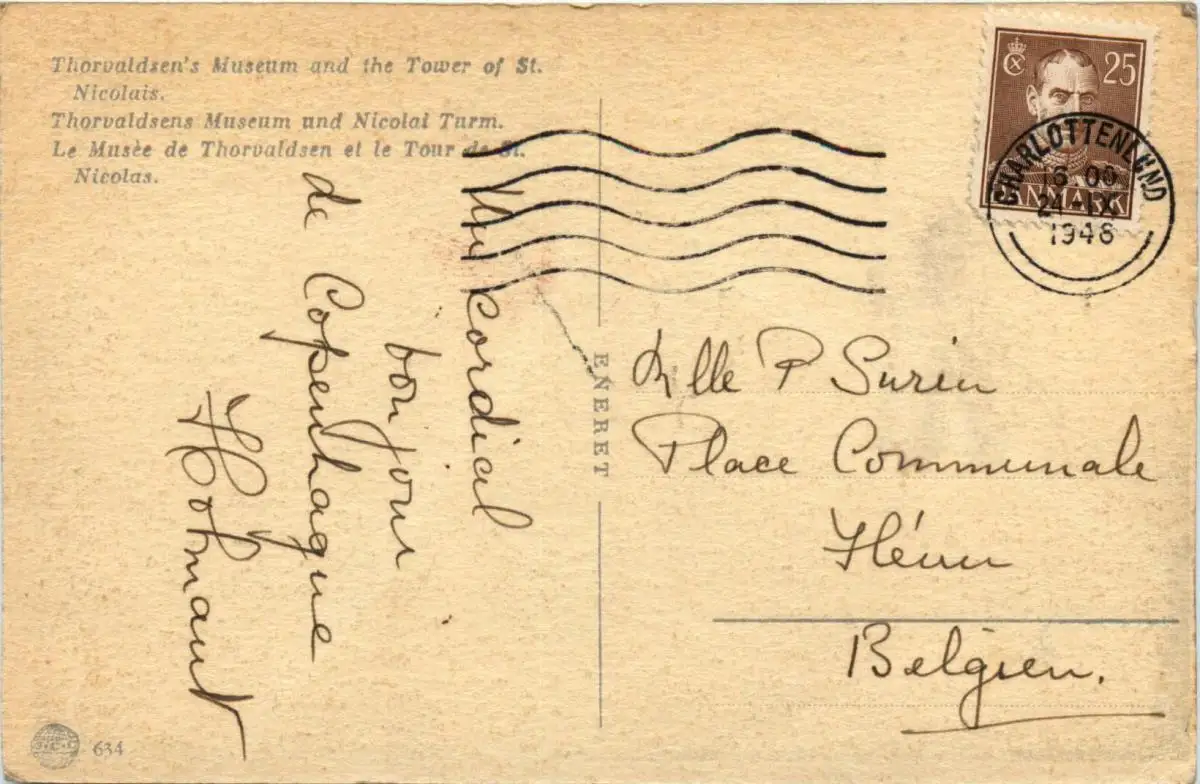 Thorvaldsen's Museum and the Tower of St.
Nicolais.
Thorvaldsens Museum und Nicolai Turm.
Le Musèe de Thorvaldsen et le Tour de St.
Nicolas.
25
DANMARK
CHARLOTTENLUND
16 00
24-IX
1946
Un cordial
bonjour
de Copenhague
ENERET
Mlle P Surin
Place Communale
Hénu
Belgien.
634